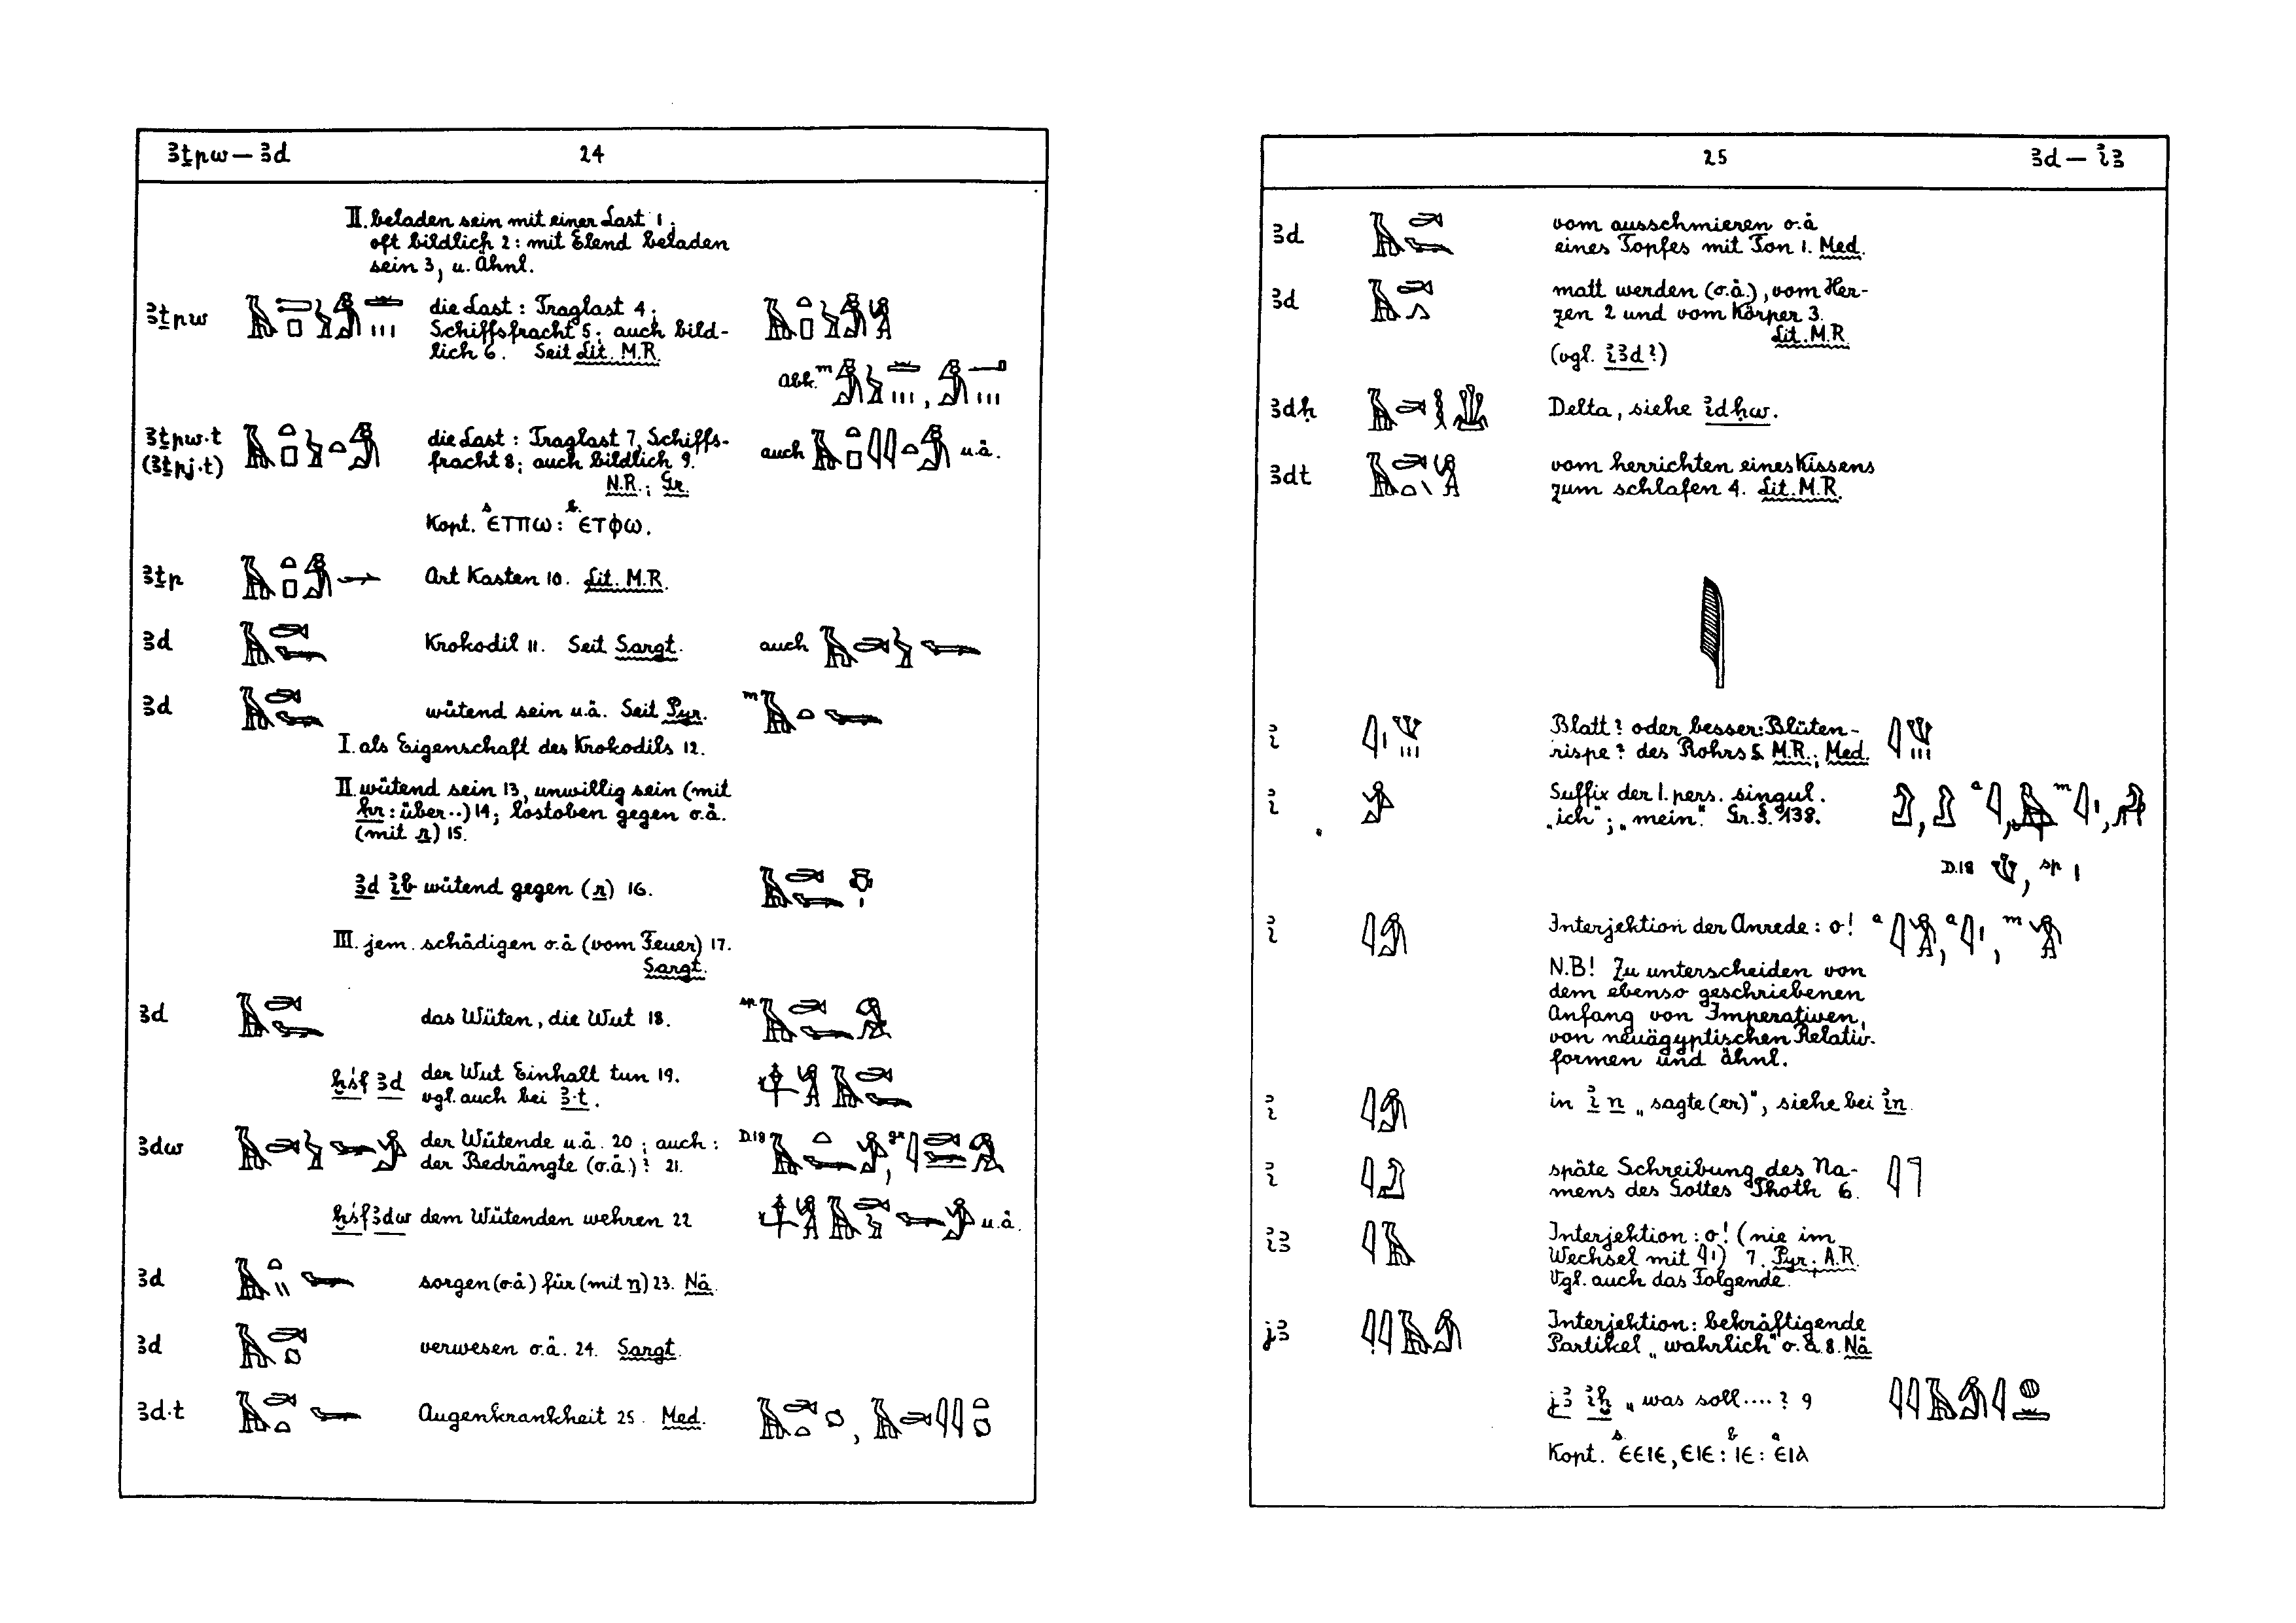 ꜣṯpw — ꜣd 24
II. beladen sein mit einer Last 1;
oft bildlich 2: mit Elend beladen
sein 3, u. Ähnl.
ꜣṯpw die Last: Traglast 4;
Schiffsfracht 5; auch bild-
lich 6. Seit Lit. M.R.
Abk. m
ꜣṯpw·t die Last: Traglast 7, Schiffs- auch u.ä.
(ꜣṯpj·t) fracht 8; auch bildlich 9.
N.R.; Gr.
Kopt. s ⲉⲧⲡⲱ: b ⲉⲧⲫⲱ.
ꜣṯp Art Kasten 10. Lit. M.R.
ꜣd Krokodil 11. Seit Sargt. auch
ꜣd wütend sein u.ä. Seit Pyr. m
I. als Eigenschaft des Krokodils 12.
II. wütend sein 13, unwillig sein (mit
ḥr: über..) 14; lostoben gegen o.ä.
(mit r) 15.
ꜣd ı͗b wütend gegen (r) 16.
III. jem. schädigen o.ä (vom Feuer) 17.
Sargt.
ꜣd das Wüten, die Wut 18. sp
ḫśf ꜣd der Wut Einhalt tun 19.
vgl. auch bei ꜣ·t.
ꜣdw der Wütende u.ä. 20; auch: D.18 , gr
der Bedrängte (o.ä.)? 21.
ḫśf ꜣdw dem Wütenden wehren 22 u.ä.
ꜣd sorgen (o.ä) für (mit n) 23. Nä.
ꜣd verwesen o.ä. 24. Sargt.
ꜣd·t Augenkrankheit 25. Med. ,
25 ꜣd — ı͗ꜣ
ꜣd vom ausschmieren o.ä
eines Topfes mit Ton 1. Med.
ꜣd matt werden (o.ä.), vom Her-
zen 2 und vom Körper 3.
Lit. M.R.
(vgl. ı͗ꜣd?)
ꜣdḥ Delta, siehe ı͗dḥw.
ꜣdt vom herrichten eines Kissens
zum schlafen 4. Lit. M.R.
ı͗ Blatt? oder besser: Blüten-
rispe? des Rohrs 5. M.R.; Med.
ı͗ Suffix der 1. pers. singul. , a , m ,
„ich"; „mein". Gr. §. 138.
D.18 , sp
ı͗ Interjektion der Anrede: o! a , a , m
N.B! Zu unterscheiden von
dem ebenso geschriebenen
Anfang von Imperativen,
von neuägyptischen Relativ-
formen und ähnl.
ı͗ in ı͗ n „sagte (er)", siehe bei ı͗n.
ı͗ späte Schreibung des Na-
mens des Gottes Thoth 6.
ı͗ꜣ Interjektion: o! (nie im
Wechsel mit 𓇋𓏤) 7. Pyr; A.R.
Vgl. auch das Folgende.
jꜣ Interjektion: bekräftigende
Partikel „wahrlich" o.ä. 8. Nä
jꜣ ı͗ḫ „was soll....? 9
Kopt. s ⲉⲉⲓⲉ, ⲉⲓⲉ: b ⲓⲉ: a ⲉⲓⲁ